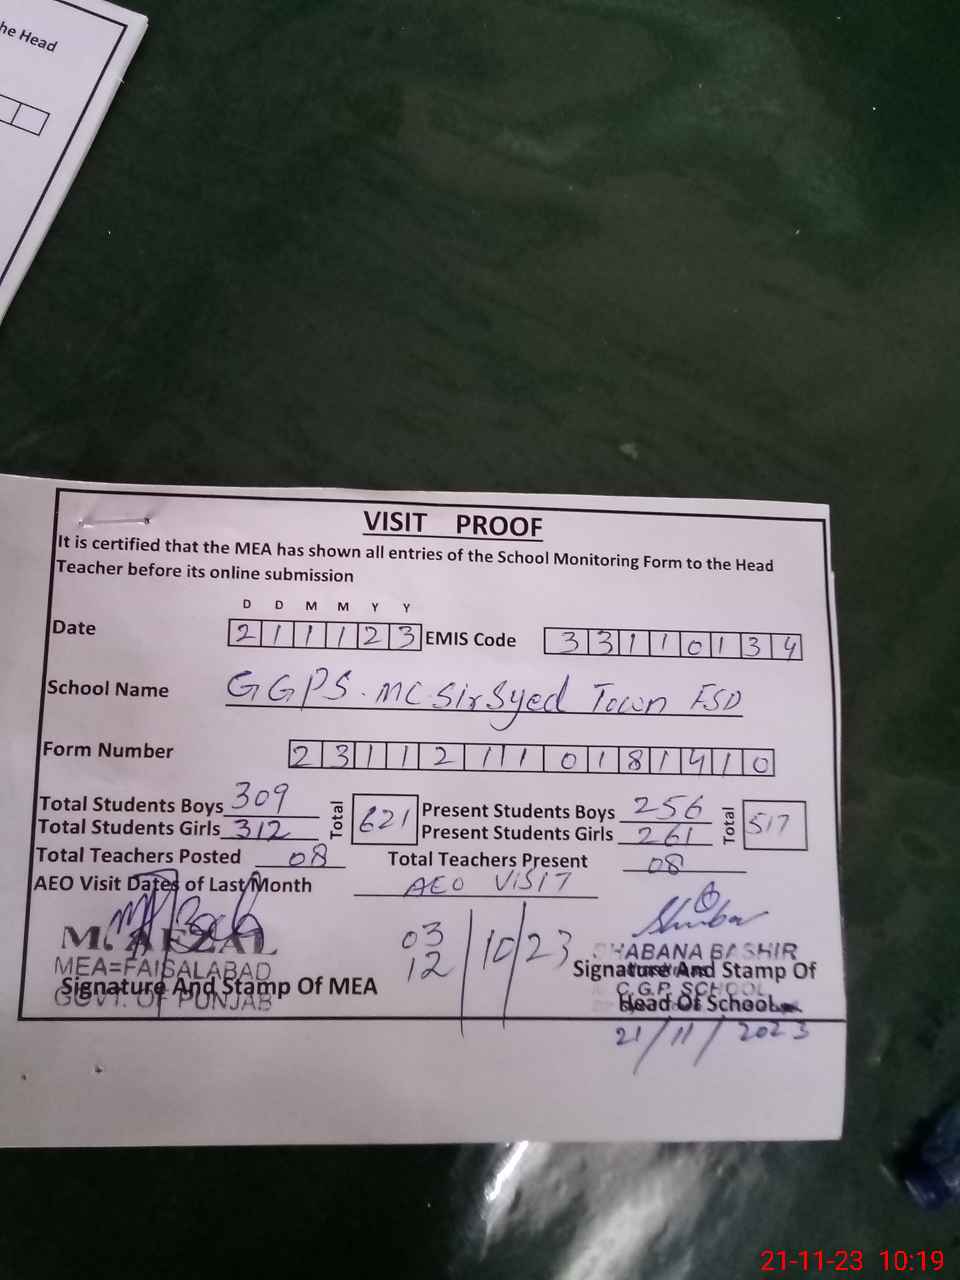 he Head
VISIT PROOF
It is certified that the MEA has shown all entries of the School Monitoring Form to the Head
Teacher before its online submission
D D M M Y Y
Date 211123 EMIS Code 33110134
School Name GGPS. MC Sir Syed Town FSD
Form Number 23112110181410
Total Students Boys 309 Total 621 Present Students Boys 256 Total 517
Total Students Girls 312 Present Students Girls 261
Total Teachers Posted 08 Total Teachers Present 08
AEO Visit Dates of Last Month AEO VISIT
03
12 /10/23
M. AFZAL
MEA=FAISALABAD
GOVT. OF PUNJAB
Signature And Stamp Of MEA
SHABANA BASHIR
C.G.P. SCHOOL
Signature And Stamp Of
Head Of School
21/11/2023
21-11-23 10:19